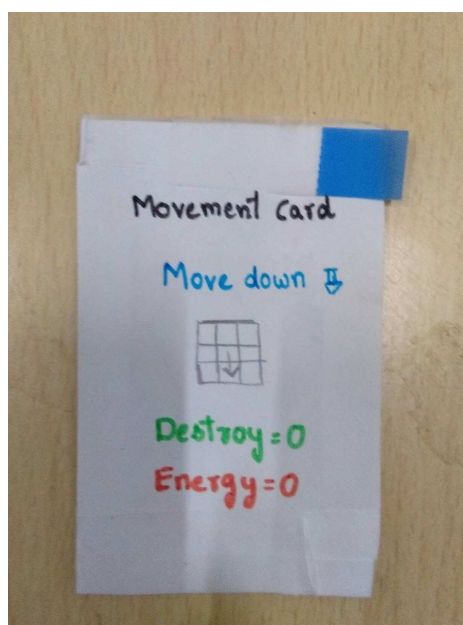 Movement Card
Move down ⇩
Destroy=0
Energy=0